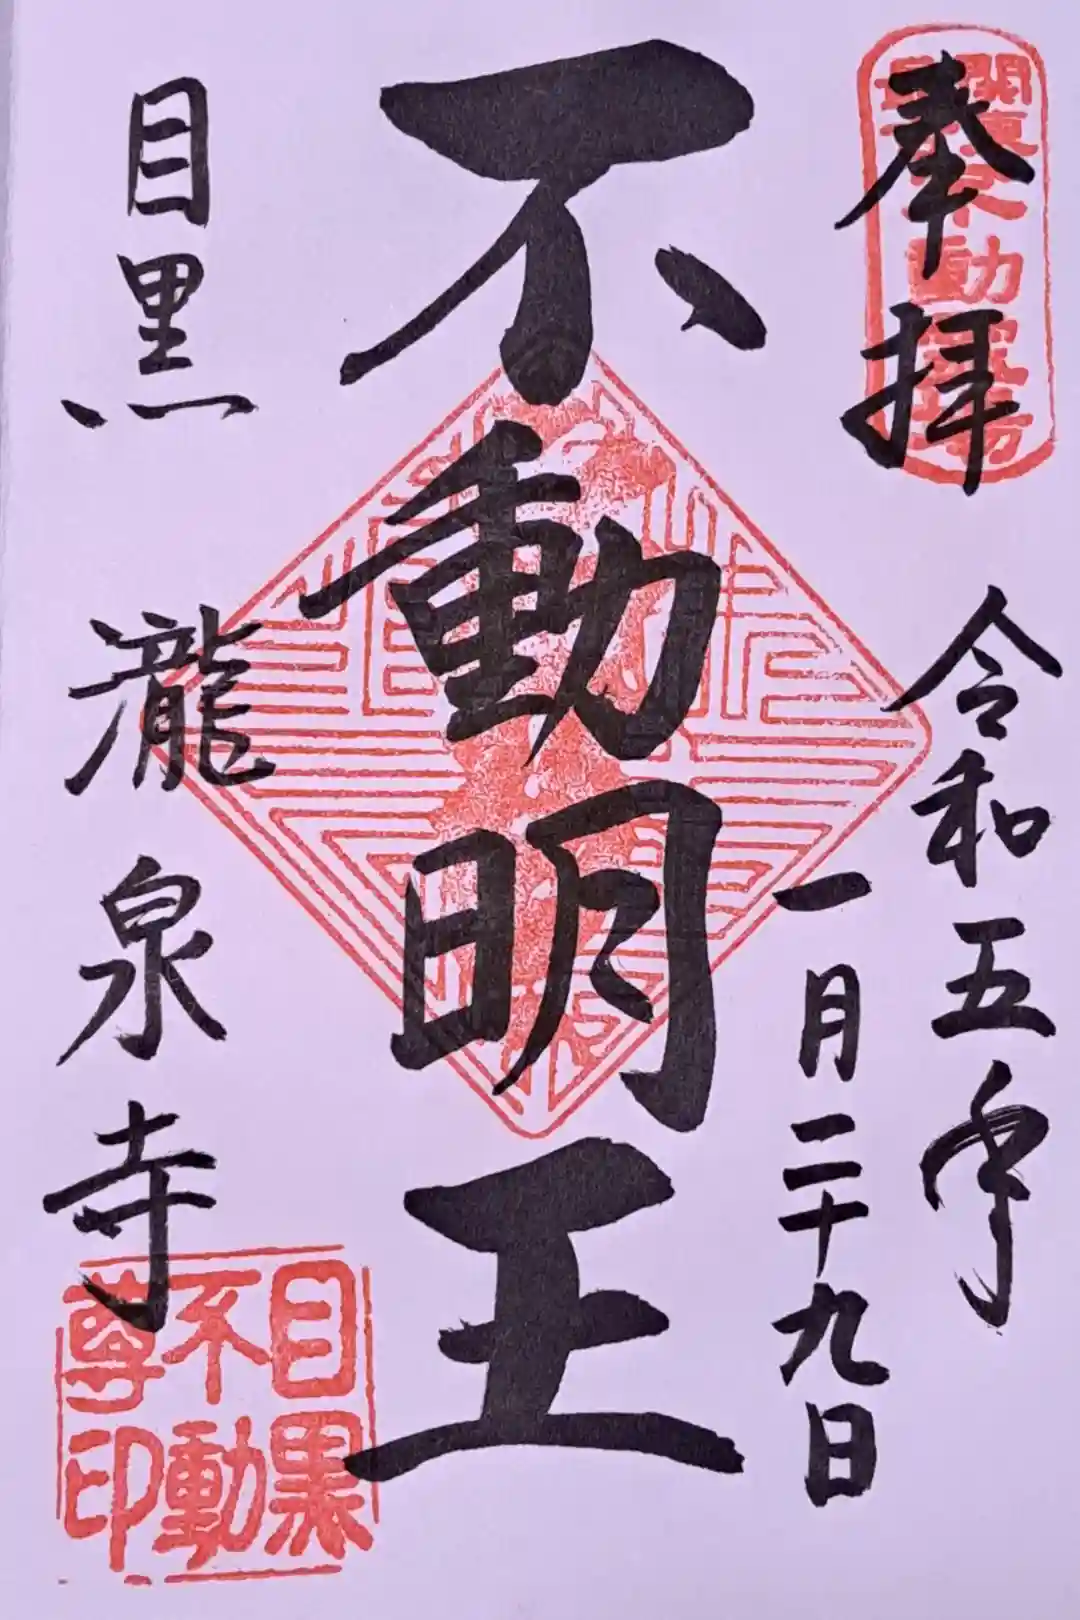 奉拝
關東
不動霊場
令和五年
一月二十九日
不動明王
目黒
瀧泉寺
目黒
不動
尊印